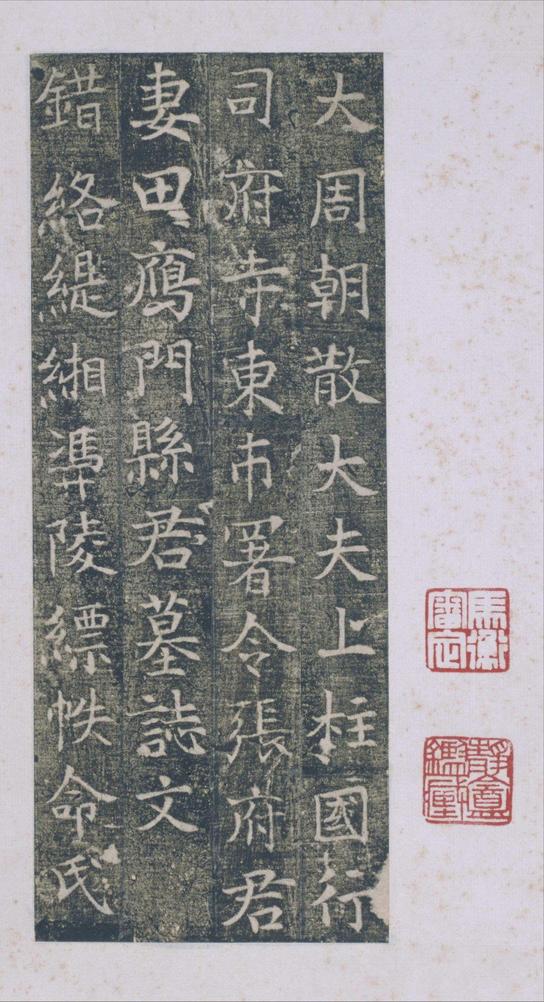 大周朝散大夫上柱國行
司府寺東市署令張府君
妻田鴈門縣君墓誌文
錯絡緹緗馮陵縹帙命氏
馬衡審定